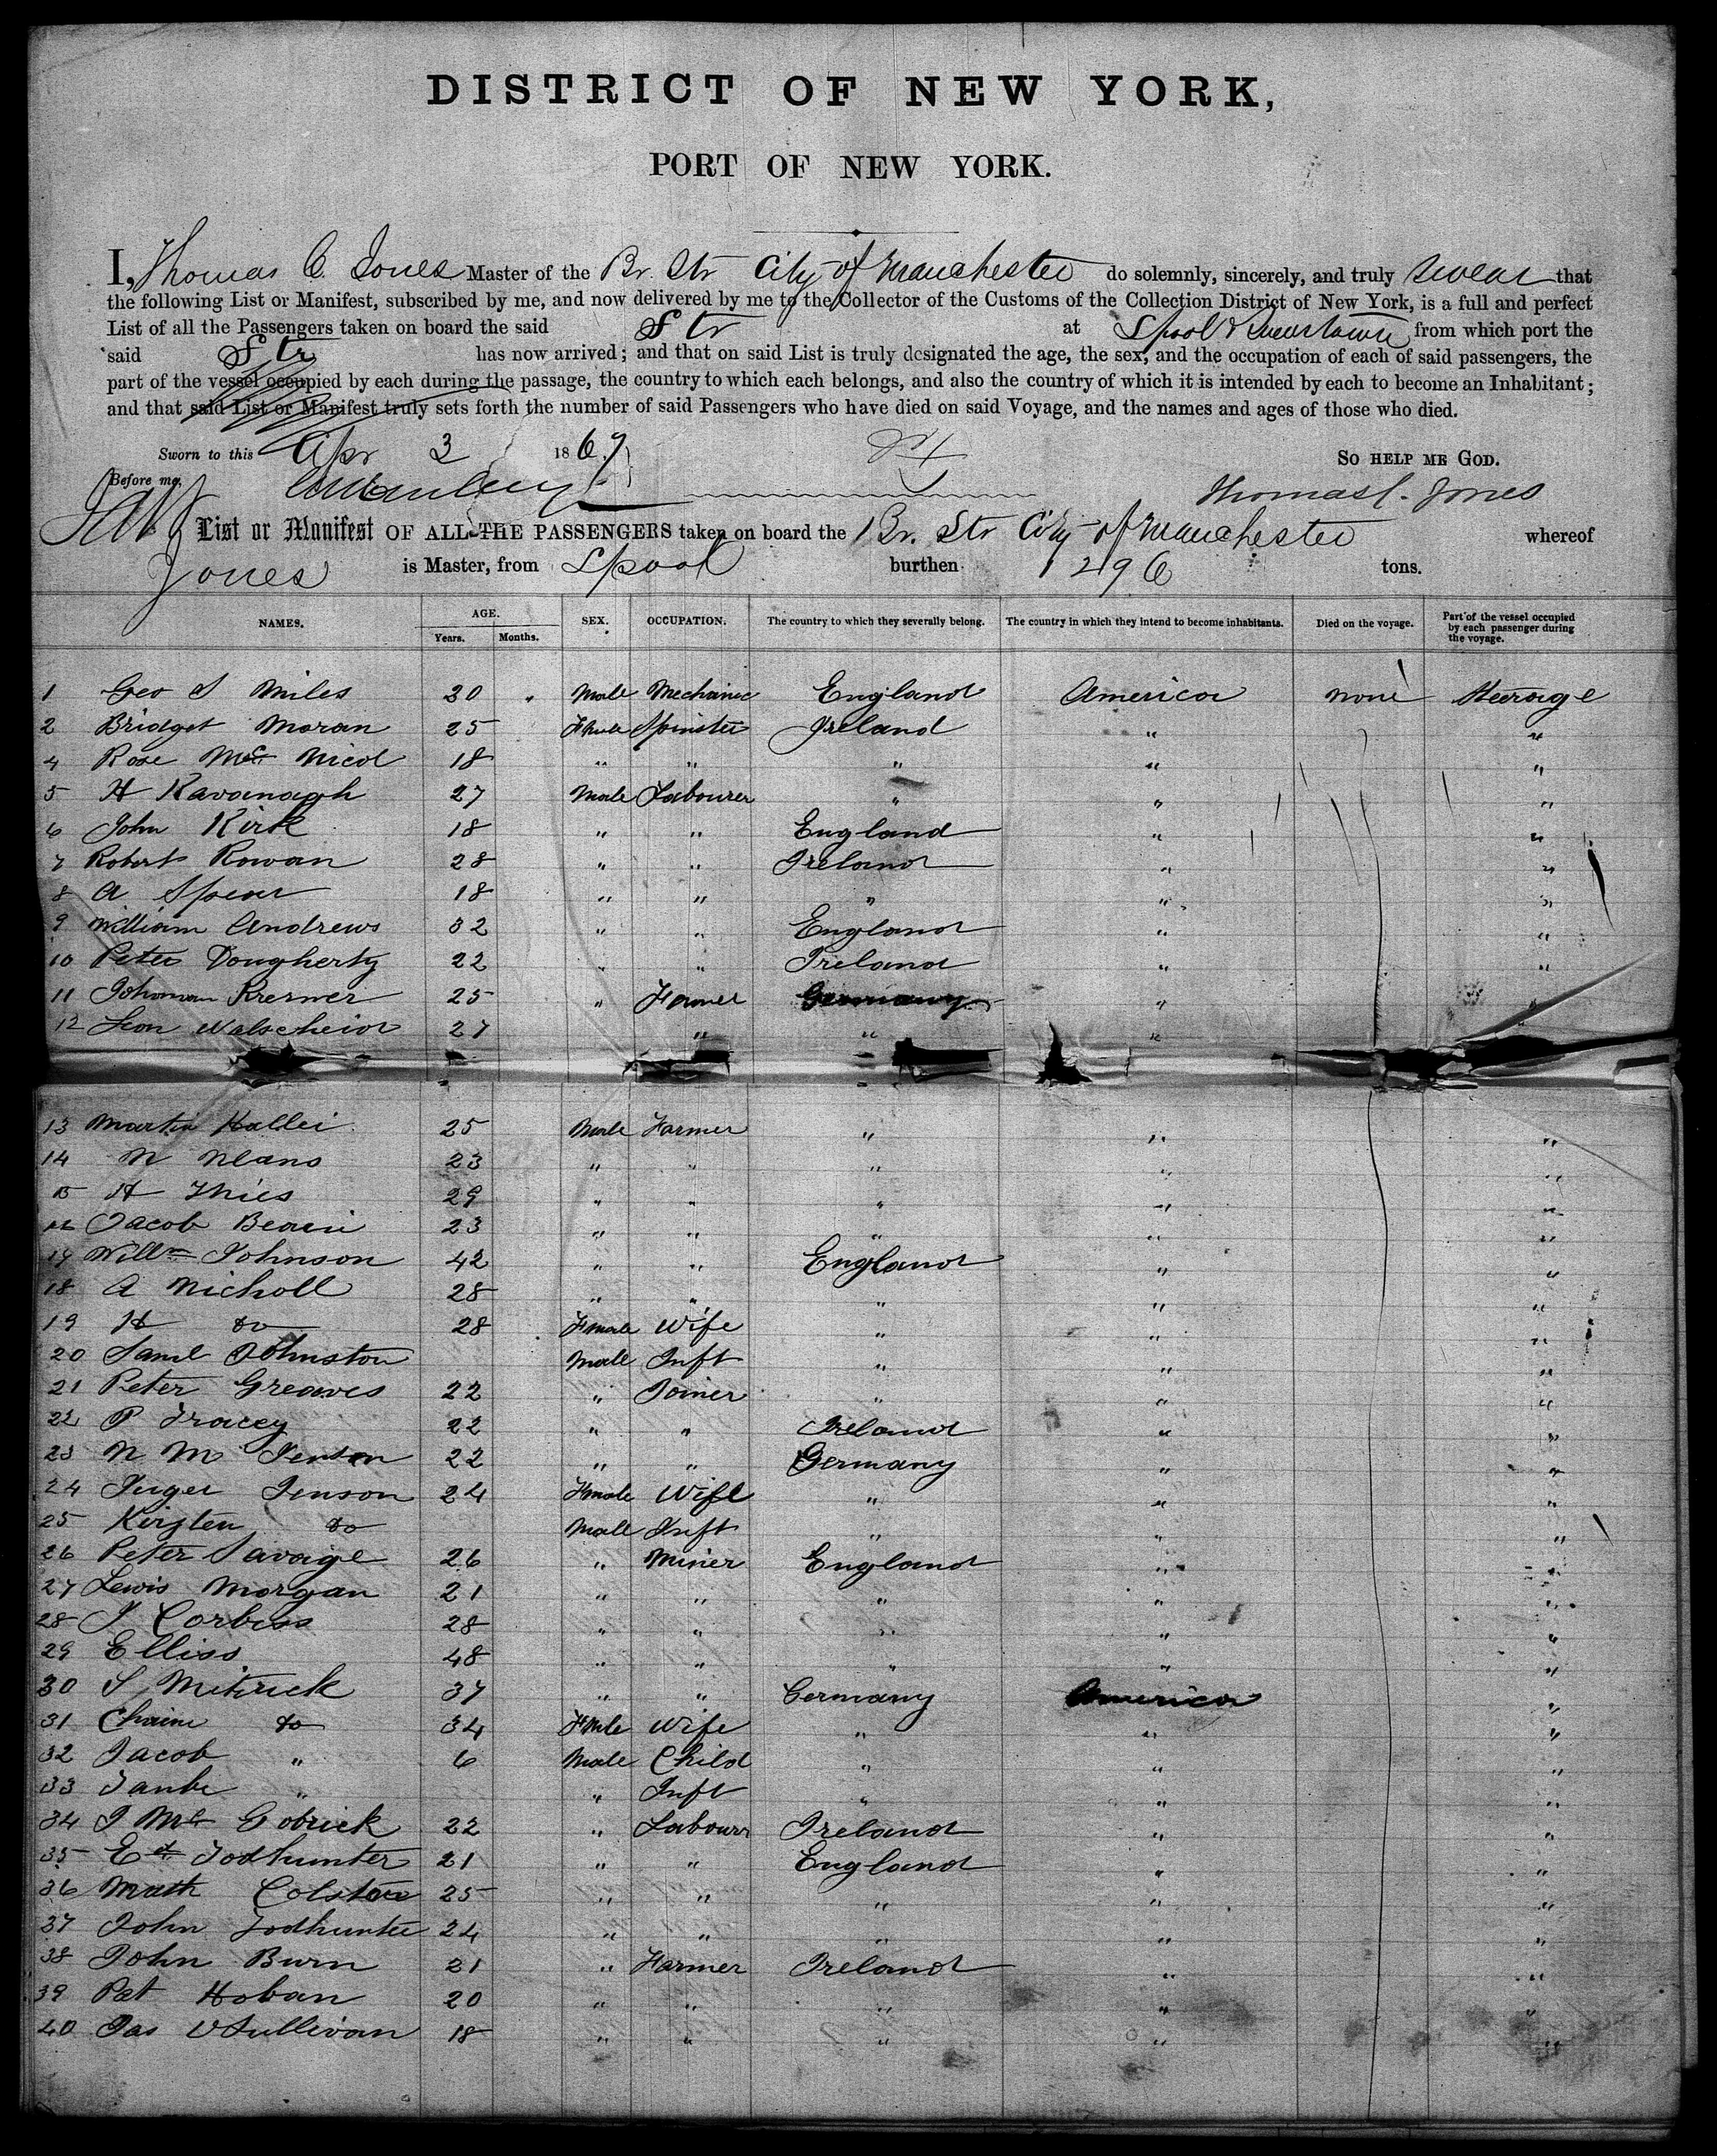 DISTRICT OF NEW YORK,
PORT OF NEW YORK.
I, Thomas C. Jones Master of the Br. Str City of Manchester do solemnly, sincerely, and truly swear that
the following List or Manifest, subscribed by me, and now delivered by me to the Collector of the Customs of the Collection District of New York, is a full and perfect
List of all the Passengers taken on board the said Str at Lpool & Queenstown from which port the
said Str has now arrived; and that on said List is truly designated the age, the sex, and the occupation of each of said passengers, the
part of the vessel occupied by each during the passage, the country to which each belongs, and also the country of which it is intended by each to become an Inhabitant;
and that said List or Manifest truly sets forth the number of said Passengers who have died on said Voyage, and the names and ages of those who died.
Sworn to this Apr 3 1869 So HELP ME GOD.
Before me, Thomas C. Jones
List or Manifest OF ALL THE PASSENGERS taken on board the Br. Str City of Manchester whereof
Jones is Master, from Lpool burthen 1296 tons.
NAMES. AGE. Years. Months. SEX. OCCUPATION. The country to which they severally belong. The country in which they intend to become inhabitants. Died on the voyage. Part of the vessel occupied by each passenger during the voyage.
1 Geo S Miles 20 " Male Mechanic England America none Steerage
2 Bridget Moran 25 Fmale Spinster Ireland " "
4 Rose Mc Nicol 18 " " " " "
5 H Kavanagh 27 Male Labourer " " "
6 John Kirk 18 " " England " "
7 Robert Rowan 28 " " Ireland " "
8 A Spear 18 " " " " "
9 William Andrews 32 " " England " "
10 Peter Dougherty 22 " " Ireland " "
11 Johoman Kresner 25 " Farmer Germany " "
12 Leon Walscheid 27 " " "
13 Martin Hallei 25 Male Farmer " " "
14 N Nlans 23 " " " " "
15 H Thies 29 " " " " "
16 Jacob 23 " " " " "
17 Willm Johnson 42 " " England " "
18 A Nicholl 28 " " " " "
19 H do 28 Fmale Wife " " "
20 Saml Johnston Male Inft " " "
21 Peter Greaves 22 " Joiner " " "
22 P Tracey 22 " " Ireland " "
23 N M Jenson 22 " " Germany " "
24 Inger Jenson 24 Fmale Wife " " "
25 Kirsten do Male Inft " " "
26 Peter Savage 26 " Miner England " "
27 Lewis Morgan 21 " " " " "
28 J Corbiss 28 " " " " "
29 Elliss 48 " " " " "
30 S Mitrick 37 " " Germany America "
31 Chaim do 34 Fmle Wife " " "
32 Jacob " 6 Male Child " " "
33 Taube " " Inft " " "
34 J Mc Gobrick 22 " Labourr Ireland " "
35 Ed Todhunter 21 " " England " "
36 Math Colston 25 " " " " "
37 John Todhunter 24 " " " " "
38 John Burn 21 " Farmer Ireland " "
39 Pat Hoban 20 " " " " "
40 Jas O Sullivan 18 " " " " "